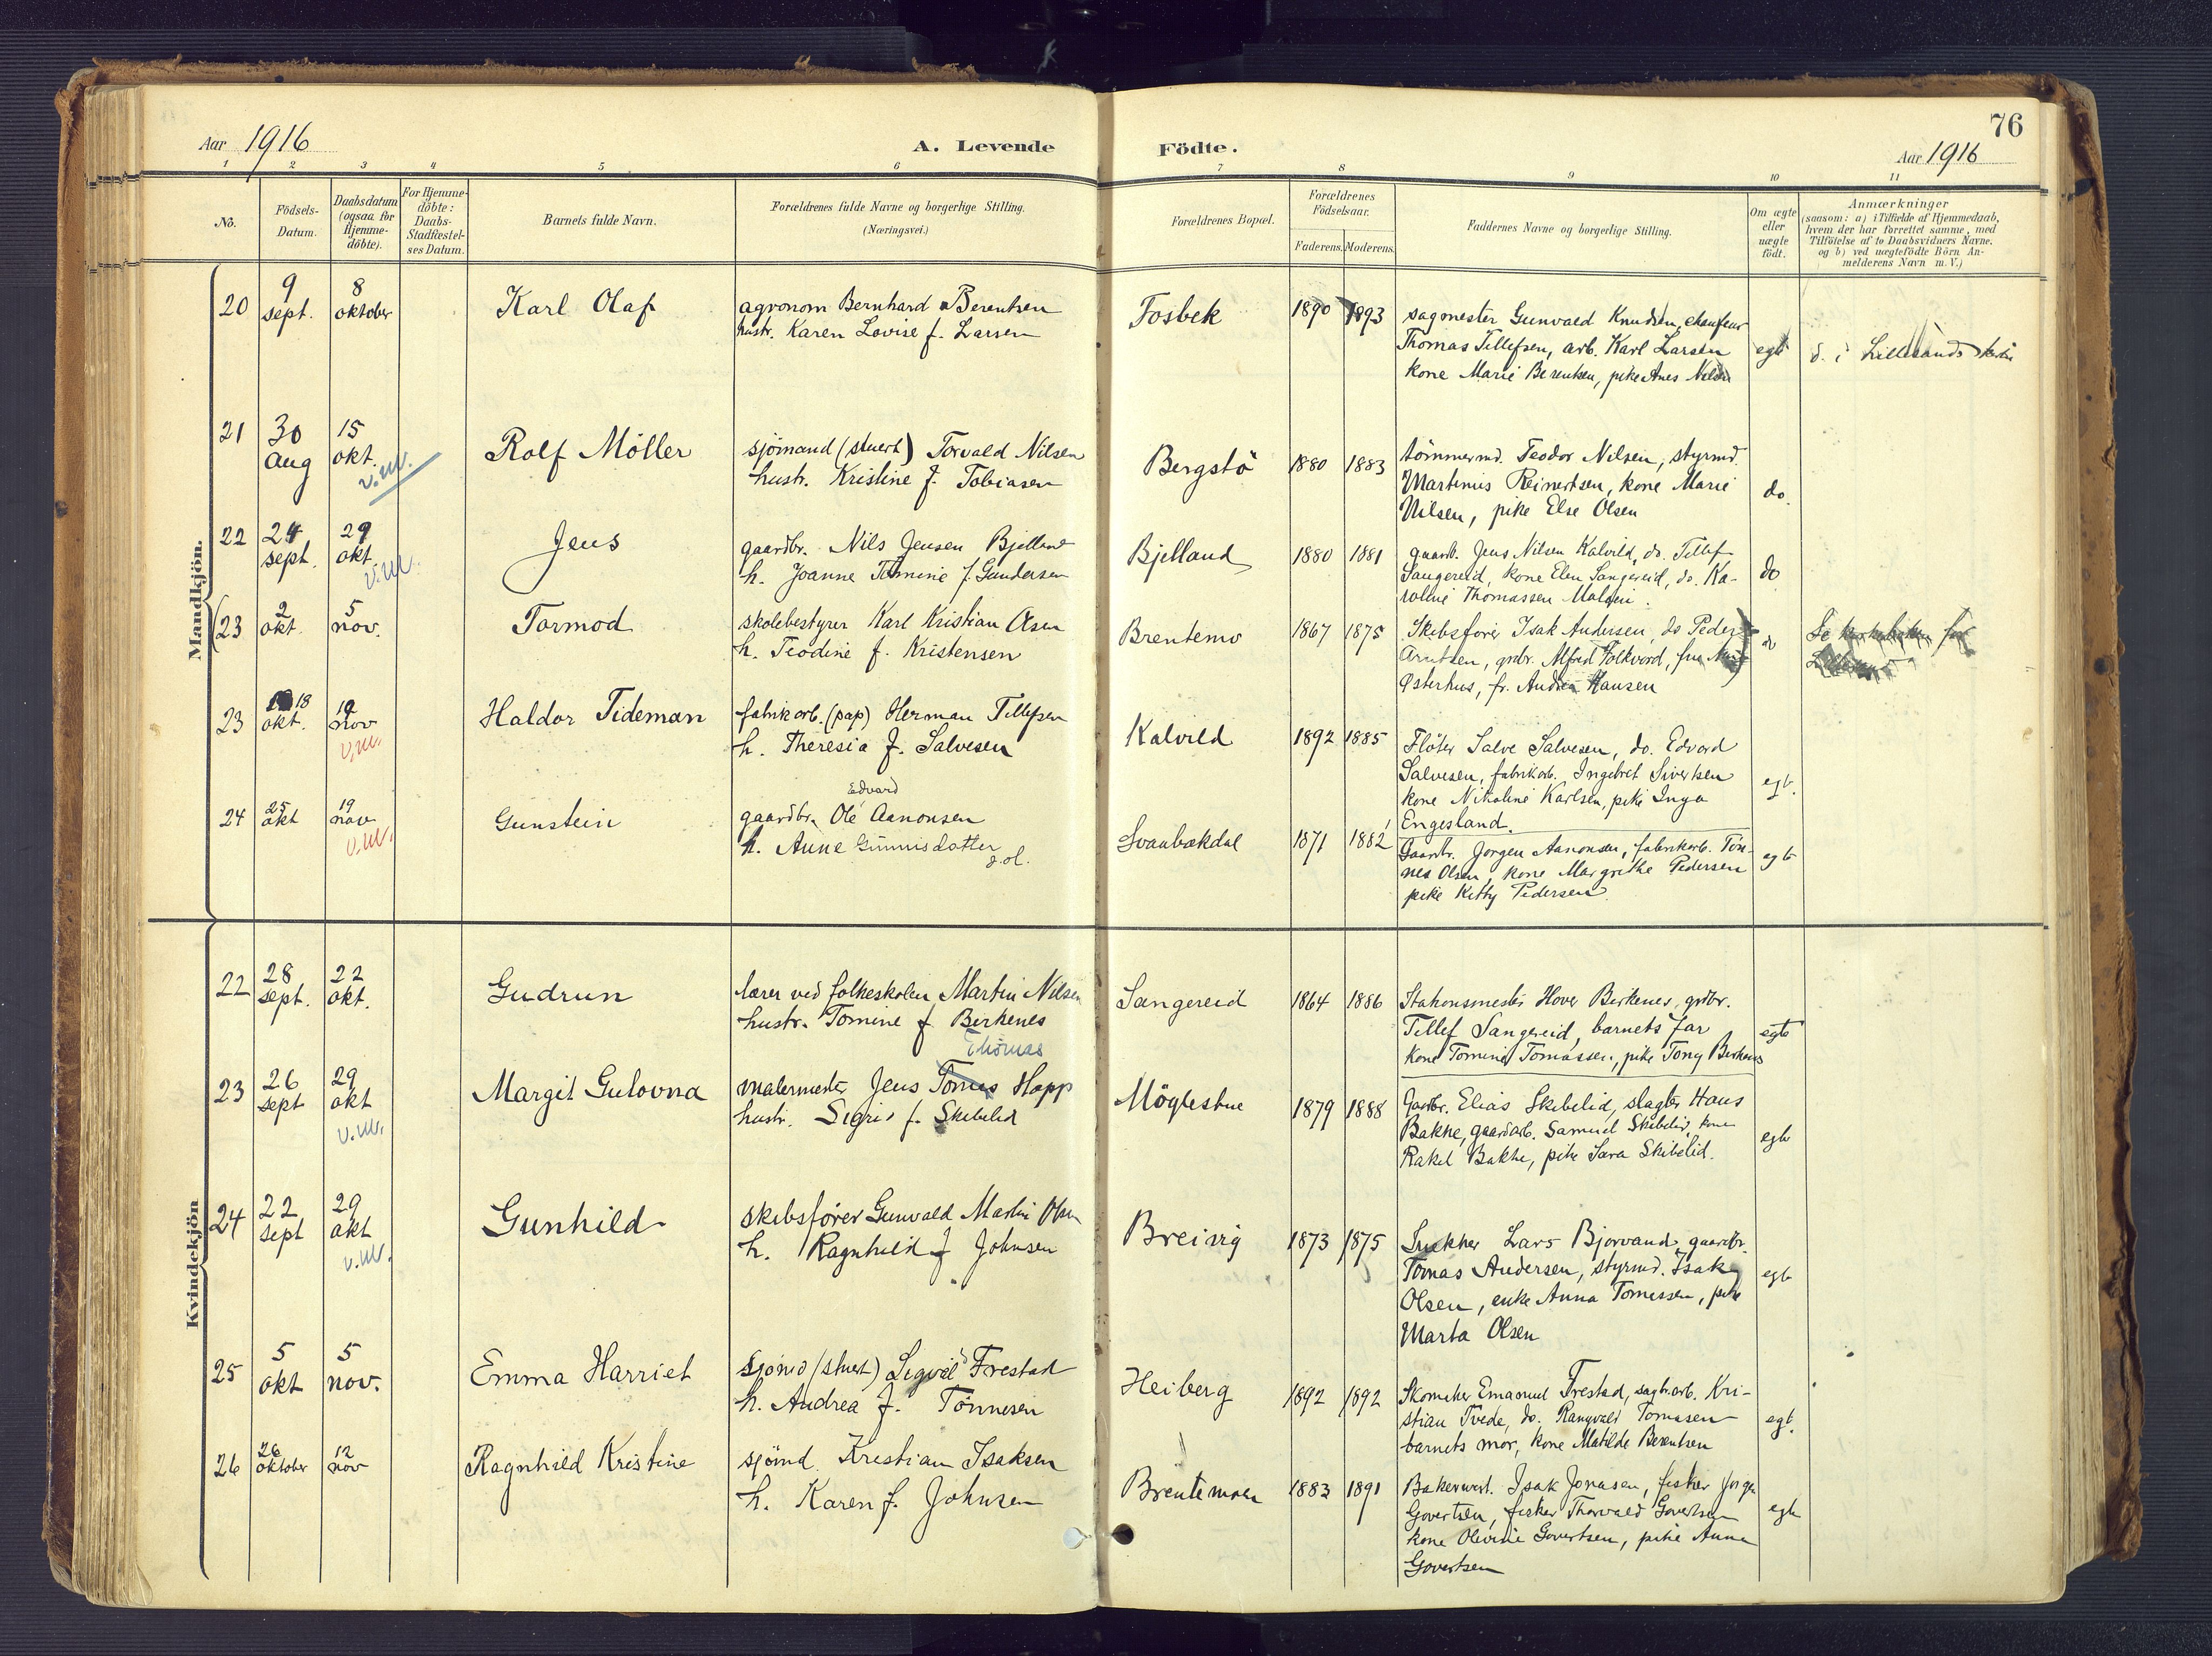 76
Aar 1916
A. Levende
Födte.
Aar 1916
1 2 3 4 5 6 7 8 9 10 11
No.
Födsels-
Datum.
Daabsdatum
(ogsaa for
Hjemme-
döbte).
For Hjemme-
döbte:
Daabs-
Stadfæstel-
ses Datum.
Barnets fulde Navn.
Forældrenes fulde Navne og borgerlige Stilling.
(Næringsvei.)
Forældrenes Bopæl.
Forældrenes
Födselsaar.
Faderens. Moderens.
Faddernes Navne og borgerlige Stilling.
Om ægte
eller
uægte
födt.
Anmærkninger
(saasom: a) i Tilfælde af Hjemmedaab,
hvem der har forrettet samme, med
Tilföielse af to Daabsvidners Navne.
og b) ved uægtefödte Börn An-
melderens Navn m. V.)
Mandkjön.
20
9
sept.
8
oktober
Karl Olaf
agronom Bernhard Berentsen
hustr. Karen Lovise f. Larsen
Fosbek
1890 1893
sagmester Gunvald Knudsen, chauffeur
Thomas Tellefsen, arb. Karl Larsen
kone Marie Berentsen, pike Anes Nilsen
egte
d. i Lillesands kirke
21
30
aug
15
okt.
v.m.
Rolf Möller
sjömand (stuert) Torvald Nilsen
hustr. Kristine f. Tobiasen
Bergstö
1880 1883
tömmermd. Teodor Nilsen, styrmd.
Martinus Reinertsen, kone Marie
Nilsen, pike Else Olsen
do.
22
24
sept.
29
okt.
v.m.
Jens
gaardbr. Nils Jensen Bjelland
h. Joanne Tomine f. Gundersen
Bjelland
1880 1881
gaarb. Jens Nilsen Kalvild, do. Tellef
Sangereid, kone Elen Sangereid, do. Ka-
roline Thomassen
do
23
2
okt.
5
nov.
Tormod
skolebestyrer Karl Kristian Olsen
h. Teodine f. Kristensen
Brentemo
1867 1875
Skibsförer Isak Andersen, do Peder
Arntsen, grdbr. Alfred Folkvord, fru
Østerhus, fr. Andrea Hansen
do
Se kirkeboken for
23
18
okt.
19
nov
v.m.
Haldor Tideman
fabrikarb. (pap) Herman Tellefsen
h. Theresia f. Salvesen
Kalvild
1892 1885
Flöter Salve Salvesen, do. Edvard
Salvesen, fabrikarb. Ingebret Sivertsen
kone Nikoline Karlsen, pike Inga
Engesland.
egt.
24
25
okt
19
nov
v.m.
Gunstein
Edvard
gaardbr. Ole Aanonsen
h. Anne Gunnisdatter
g. ol.
Svanbækdal
1871 1882
Gaardbr. Jørgen Aanonsen, fabrikarb. Tön-
nes Olsen, kone Margrethe Pedersen
pike Kitty Pedersen.
egt
Kvindekjön
22
28
sept.
22
okt.
Gudrun
lærer ved folkeskolen Martin Nilsen
hustr. Tomine f. Birkenes
Sangereid
1864 1886
Stationsmester Hover Birkenes, grdbr.
Tellef Sangereid, barnets far
kone Tomine Tomassen, pike Tony Birkenes
egte
23
26
sept
29
okt
v.m.
Margit Gulovna
Thomas
malermester Jens Tomas Hopp
hustr. Sigrid f. Skibelid
Möglestue
1879 1888
Gardbr. Elias Skibelid, slagter Hans
Bakke, gaardarb. Samuel Skibelid, kone
Rakel Bakke, pike Sara Skibelid.
egte
24
22
sept
29
okt
v.m.
Gunhild
skibsförer Gunvald Martin Olsen
h. Ragnhild f Johnsen
Breivig
1873 1875
Snekker Lars Bjorvand, gaardbr.
Tomas Andersen, styrmd. Isak
Olsen, enke Anna Tomessen, pike
Marta Olsen
egt
25
5
okt
5
nov.
Emma Harriet
Sjömd (stuert) Sigvald Frestad
h. Andrea f. Tönnesen
Heiberg
1892 1892
Skomaker Emanuel Frestad, sagbr.arb. Kri-
stian Tvede, do. Rangvald Tomasen
barnets mor, kone Matilde Berentsen
egt.
26
26
oktober
12
nov
Ragnhild Kristine
sjömd. Kristian Isaksen
h. Karen f. Johnsen
Brentemoen
1883 1891
Bakermest. Isak Jonasen, fisker Jørgen
Govertsen, fisker Thorvald Govertsen
kone Olevine Govertsen, pike Anna
Govertsen
egte